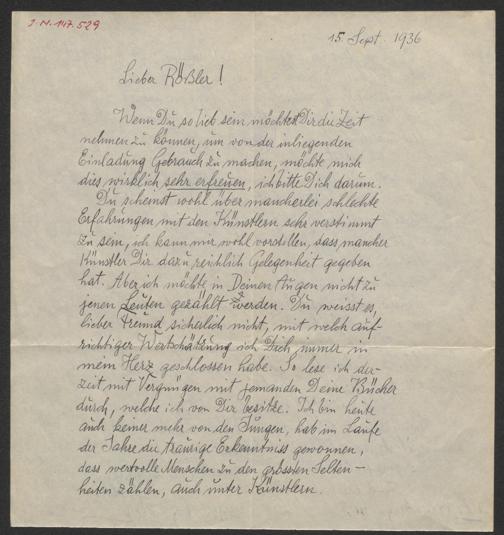 J.N. 147.529
15. Sept. 1936
Lieber Rößler!
Wenn Du so lieb sein möchtest Dir die Zeit
nehmen zu können, um von der inliegenden
Einladung Gebrauch zu machen, möchte mich
dies wirklich sehr erfreuen, ich bitte Dich darum.
Du scheinst wohl über mancherlei schlechte
Erfahrungen mit den Künstlern sehr verstimmt
zu sein, ich kann mir wohl vorstellen, dass mancher
Künstler Dir dazu reichlich Gelegenheit gegeben
hat. Aber ich möchte in Deinen Augen nicht zu
jenen Leuten gezählt werden. Du weisst es,
lieber Freund sicherlich nicht, mit welch auf-
richtiger Wertschätzung ich Dich immer in
mein Herz geschlossen habe. So lese ich der-
zeit mit Vergnügen mit jemanden Deine Bücher
durch, welche ich von Dir besitze. Ich bin heute
auch keiner mehr von den Jungen, hab im Laufe
der Jahre die traurige Erkenntniss gewonnen,
dass wertvolle Menschen zu den grössten Selten-
heiten zählen, auch unter Künstlern.